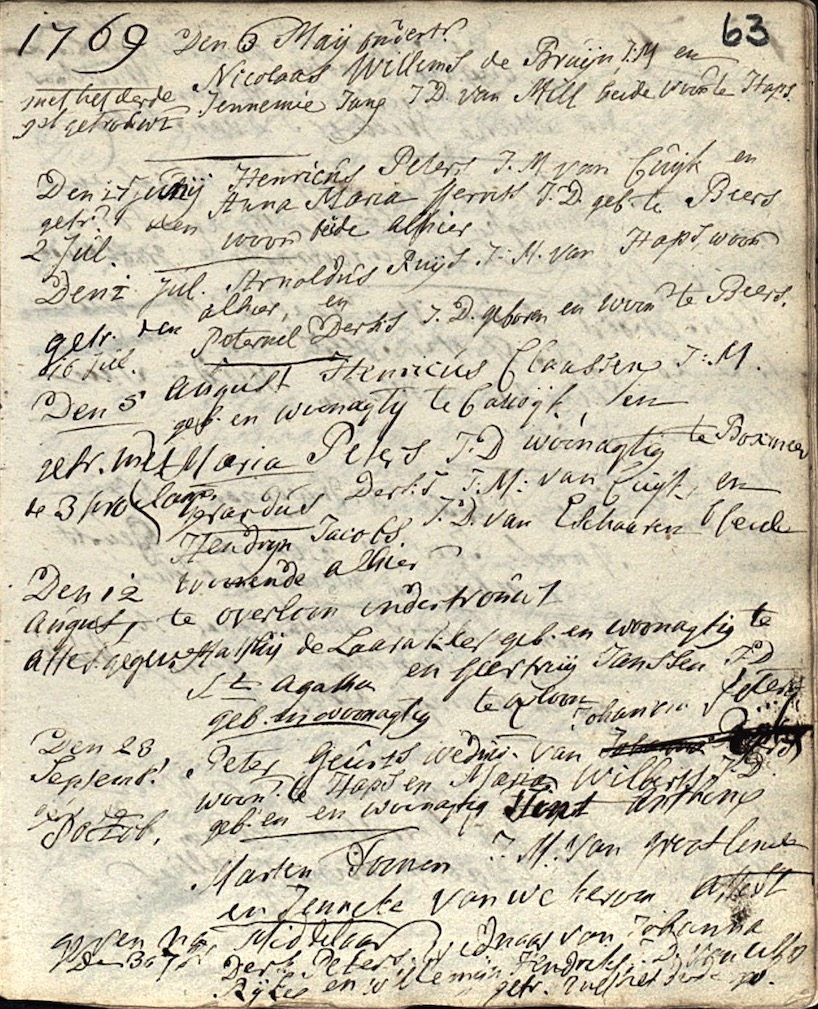 63
1769 Den 6 Maij ondertr.
Nicolaas Willems de Bruijn J:M en
met het derde Jennemie Jang J D. van Mill beide woon te Haps.
getrouwt
Henricus Peters J. M van Cuijk en
Den 17 Junij Anna Maria J. D. geb. te Beers
getr. den woon beide alhier
2 Jul.
Den 1 Jul. Arnoldus Ruijs J: M. van Haps, woon
alhier, en
getr. den Peternel Derks J. D. geboren en woon te Beers.
16 Jul.
Den 5 August Henricus Claassen J: M.
geb. en woonagtig te en
getr. met Maria Peters J. D woonagtig te Boxmeer
de 3 proclam. Gerardus Derks J. M: van Cuijk, en
Hendryn Jacobs J. D. van Escharen beide
woonende alhier
Den 12
August, te overloon ondertrouwt
Attest. gegeven Mathij de Laarakker geb. en woonagtig te
St Agatha en Geertruij Janssen J. D
geb. en woonagtig te Oploon
Johannes Peters
Den 28 Peter Geurts weduw. van
Septemb. woon te Haps en Maria Wilbers J. D.
geb. en en woonagtig Sint Anthonis
Octob.
Marten Toonen J. M. van
en Jenneke van attest
gegeven na Middelaar
Den 30 Derk Peters weduwnaar van Johanna
en Willemijn Hendriks J. D. van
getr. met het derde